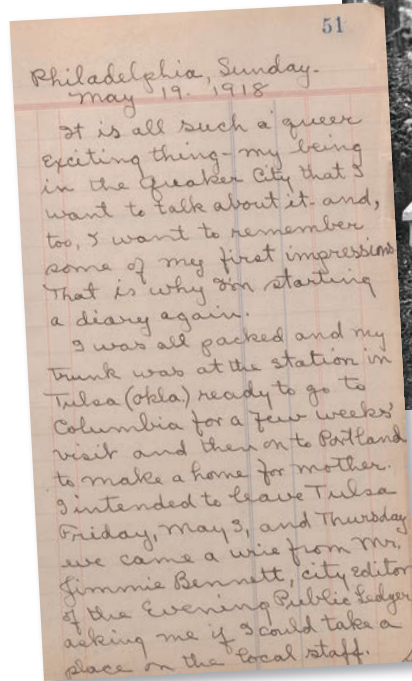 51
Philadelphia, Sunday.
May 19. 1918
It is all such a queer
exciting thing - my being
in the Quaker City that I
want to talk about it - and,
too, I want to remember
some of my first impressions.
That is why I'm starting
a diary again.
I was all packed and my
trunk was at the station in
Tulsa (Okla.) ready to go to
Columbia for a few weeks'
visit and then on to Portland
to make a home for mother.
I intended to leave Tulsa
Friday, May 3, and Thursday
eve came a wire from Mr.
Jimmie Bennett, city editor
of the Evening Public Ledger
asking me if I could take a
place on the local staff.